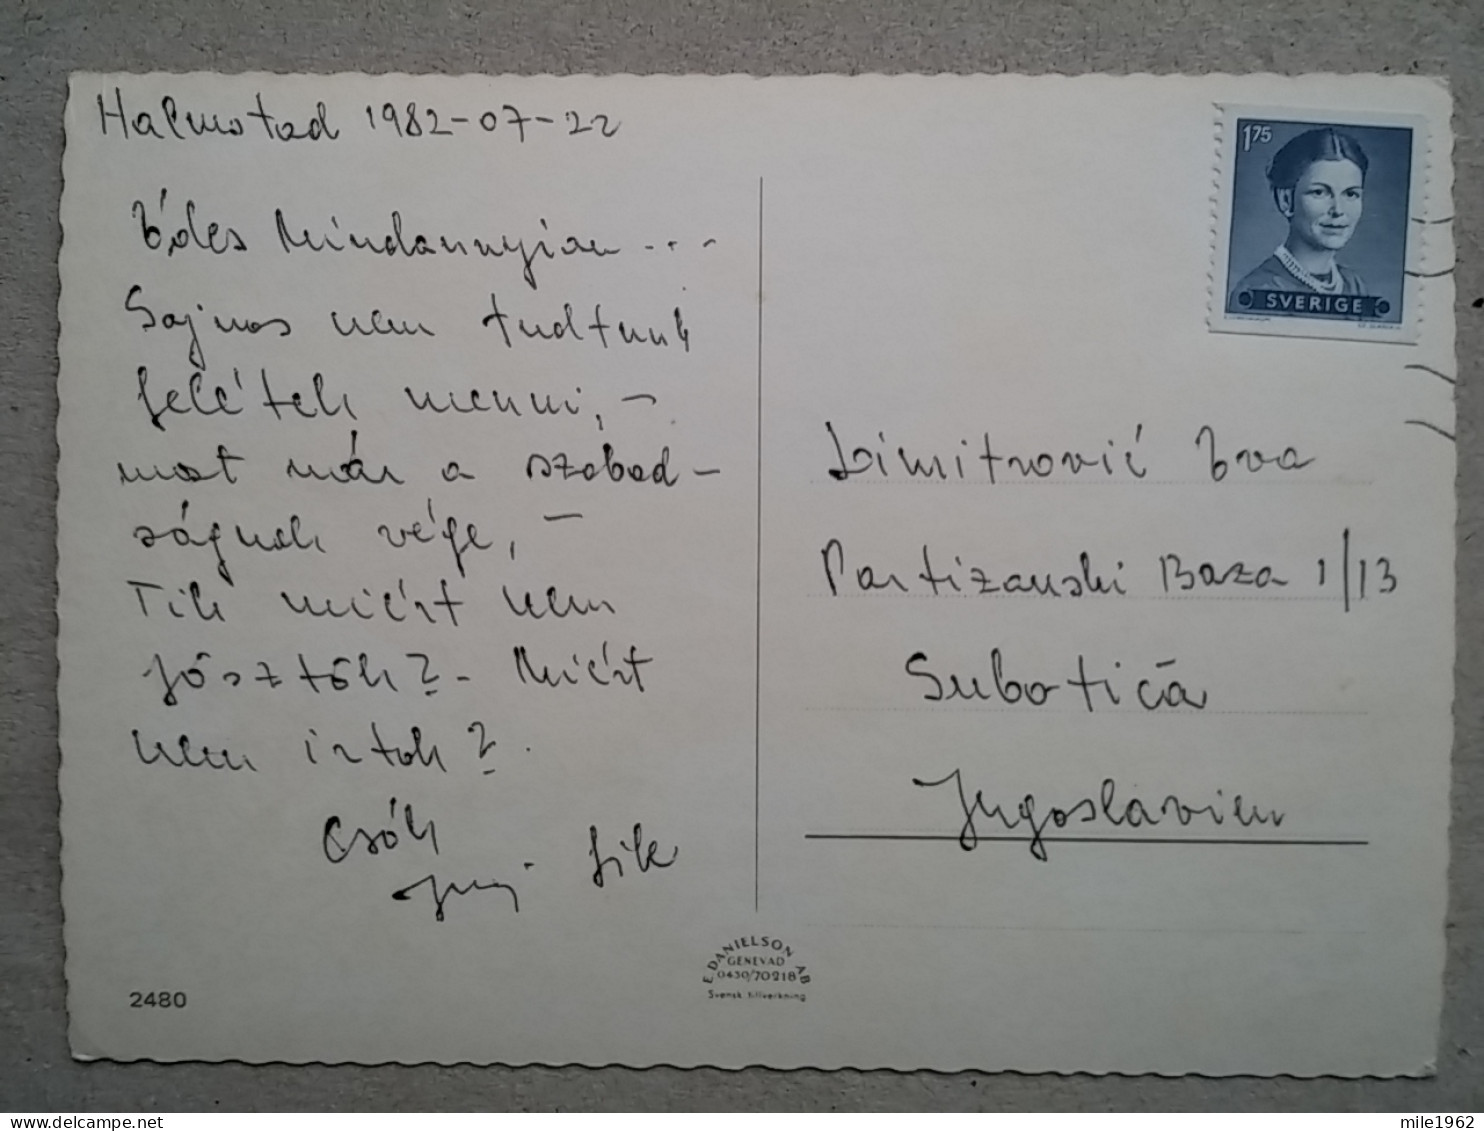 Halmstad 1982-07-22
Édes Mindannyian ...
Sajnos nem tudtunk
felétek menni, -
most már a szabad-
ságnak vége, -
Tik miért nem
jösztök? - Miért
nem irtok?
Csók
2480
1,75
SVERIGE
Dimitrović Eva
Partizanski Baza 1/13
Subotica
Jugoslavien
E. DANIELSON AB
GENEVAD
0430/70218
Svensk tillverkning
mile1962